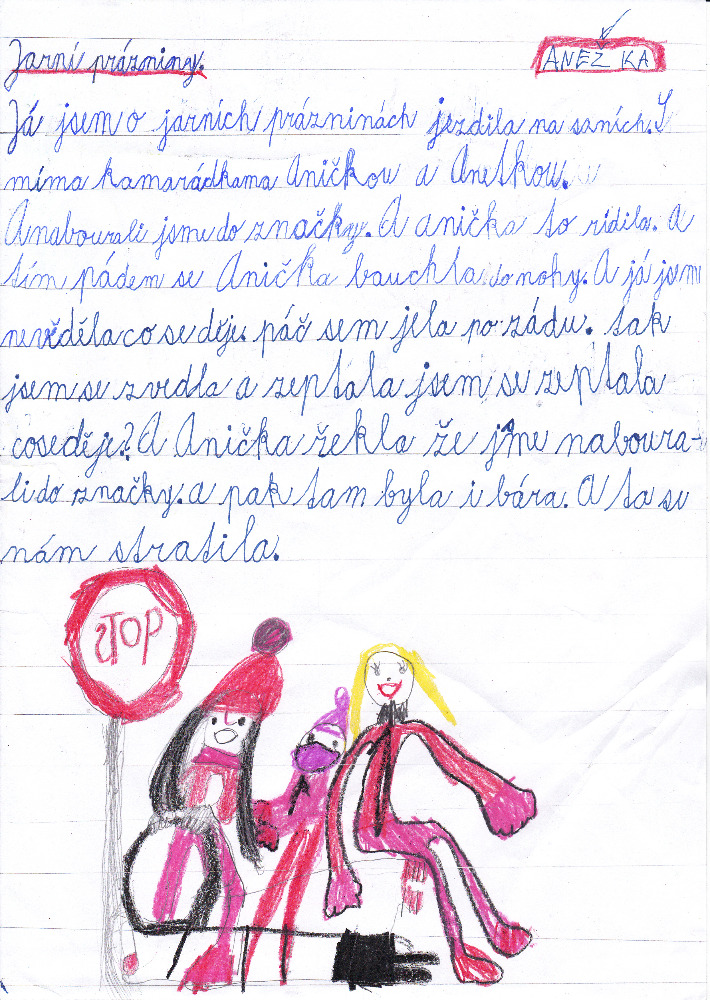 Jarní prázniny.
ANEŽKA
Já jsem o járních prázninách jezdila na saních. S
míma kamarádkama Aničkou a Anetkou.
A nabourali jsme do značky. A anička to rídila. A
tím pádem se Anička bauchla do nohy. A já jsem
nevěděla co se děje. páč sem jela po zádu. tak
jsem se zvedla a zeptala jsem se zeptala
co se děje? A Anička žekla že jsme naboura-
li do značky. a pak tam byla i bára. A ta se
nám stratila.
STOP